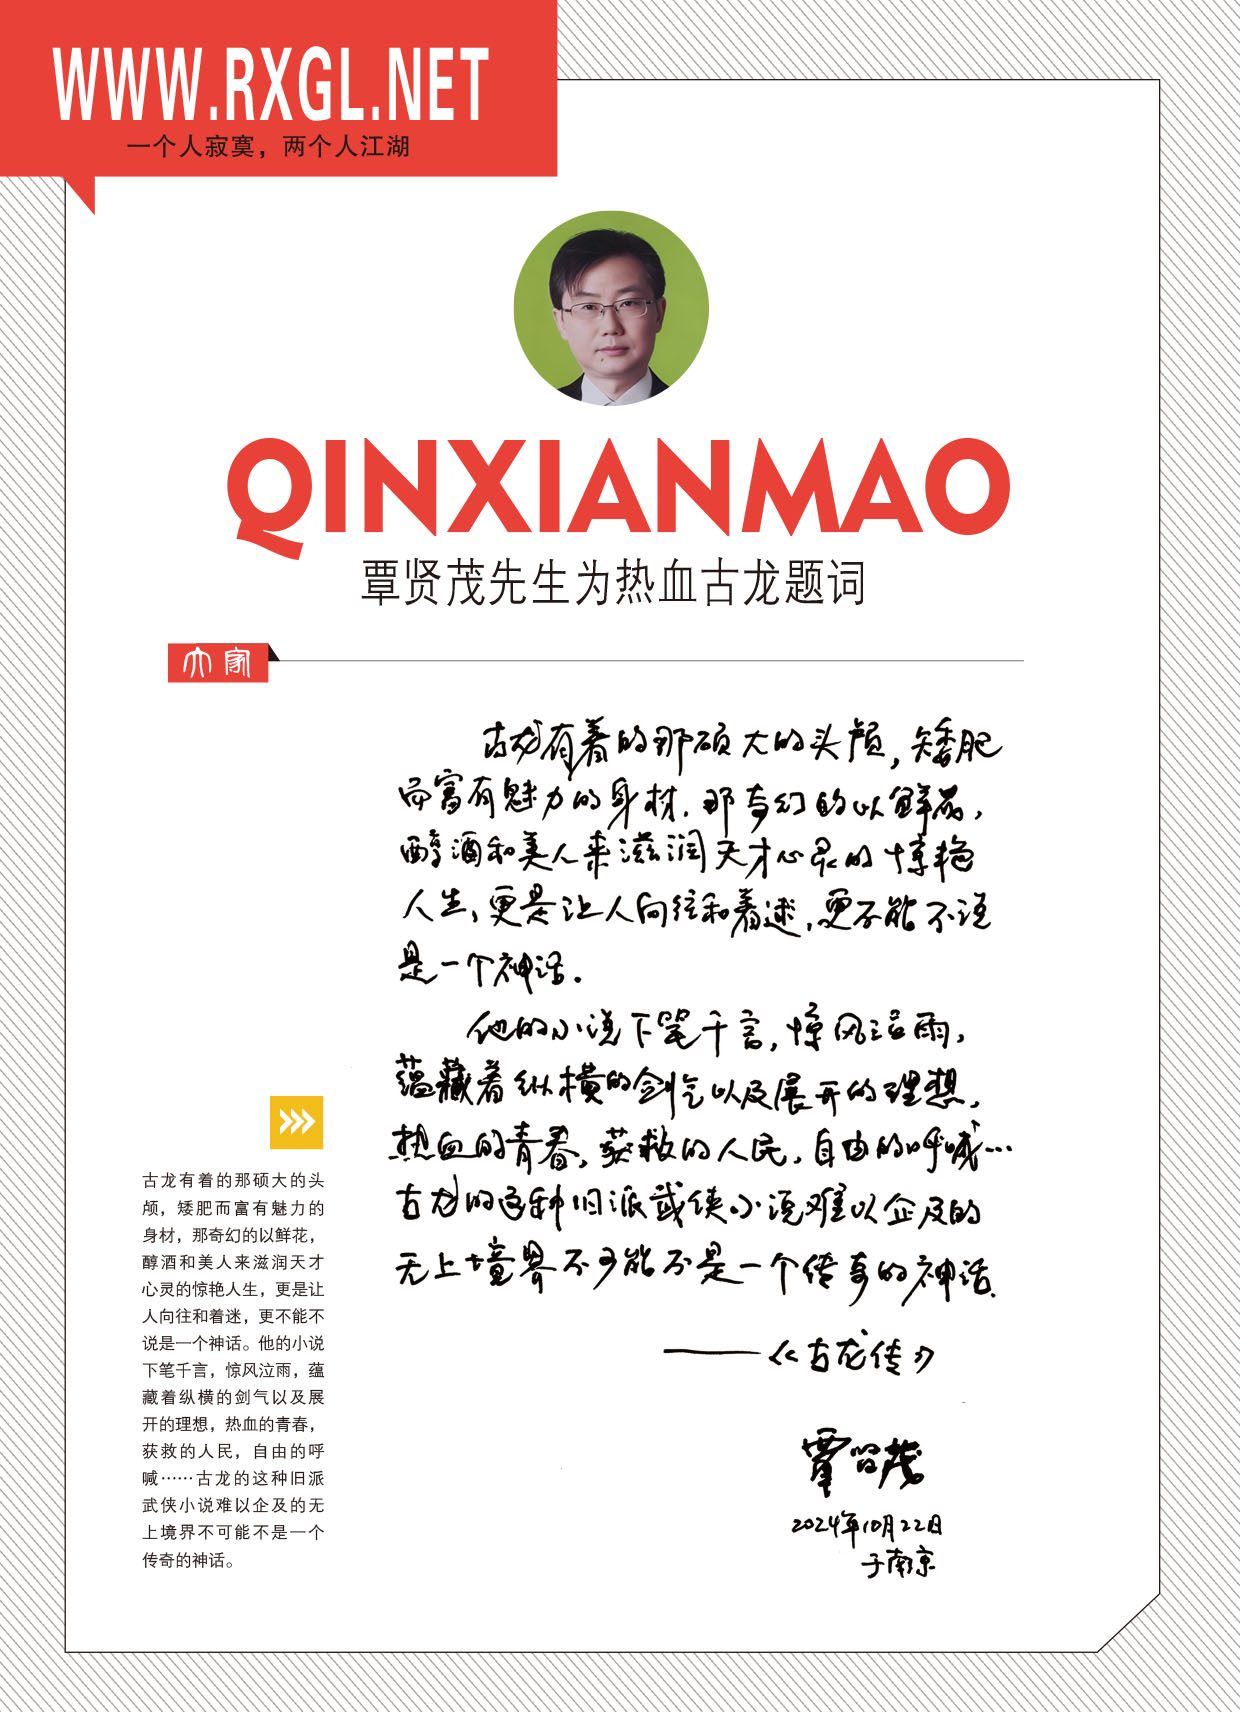 WWW.RXGL.NET
一个人寂寞，两个人江湖
QINXIANMAO
覃贤茂先生为热血古龙题词
大家
古龙有着的那硕大的头颅，矮肥
而富有魅力的身材，那奇幻的以鲜花，
醇酒和美人来滋润天才心灵的惊艳
人生，更是让人向往和着迷，更不能不说
是一个神话。
他的小说下笔千言，惊风泣雨，
蕴藏着纵横的剑气以及展开的理想，
热血的青春，获救的人民，自由的呼喊……
古龙的这种旧派武侠小说难以企及的
无上境界不可能不是一个传奇的神话。
——《古龙传》
覃贤茂
2024年10月22日
于南京
古龙有着的那硕大的头
颅，矮肥而富有魅力的
身材，那奇幻的以鲜花，
醇酒和美人来滋润天才
心灵的惊艳人生，更是让
人向往和着迷，更不能不
说是一个神话。他的小说
下笔千言，惊风泣雨，蕴
藏着纵横的剑气以及展
开的理想，热血的青春，
获救的人民，自由的呼
喊……古龙的这种旧派
武侠小说难以企及的无
上境界不可能不是一个
传奇的神话。